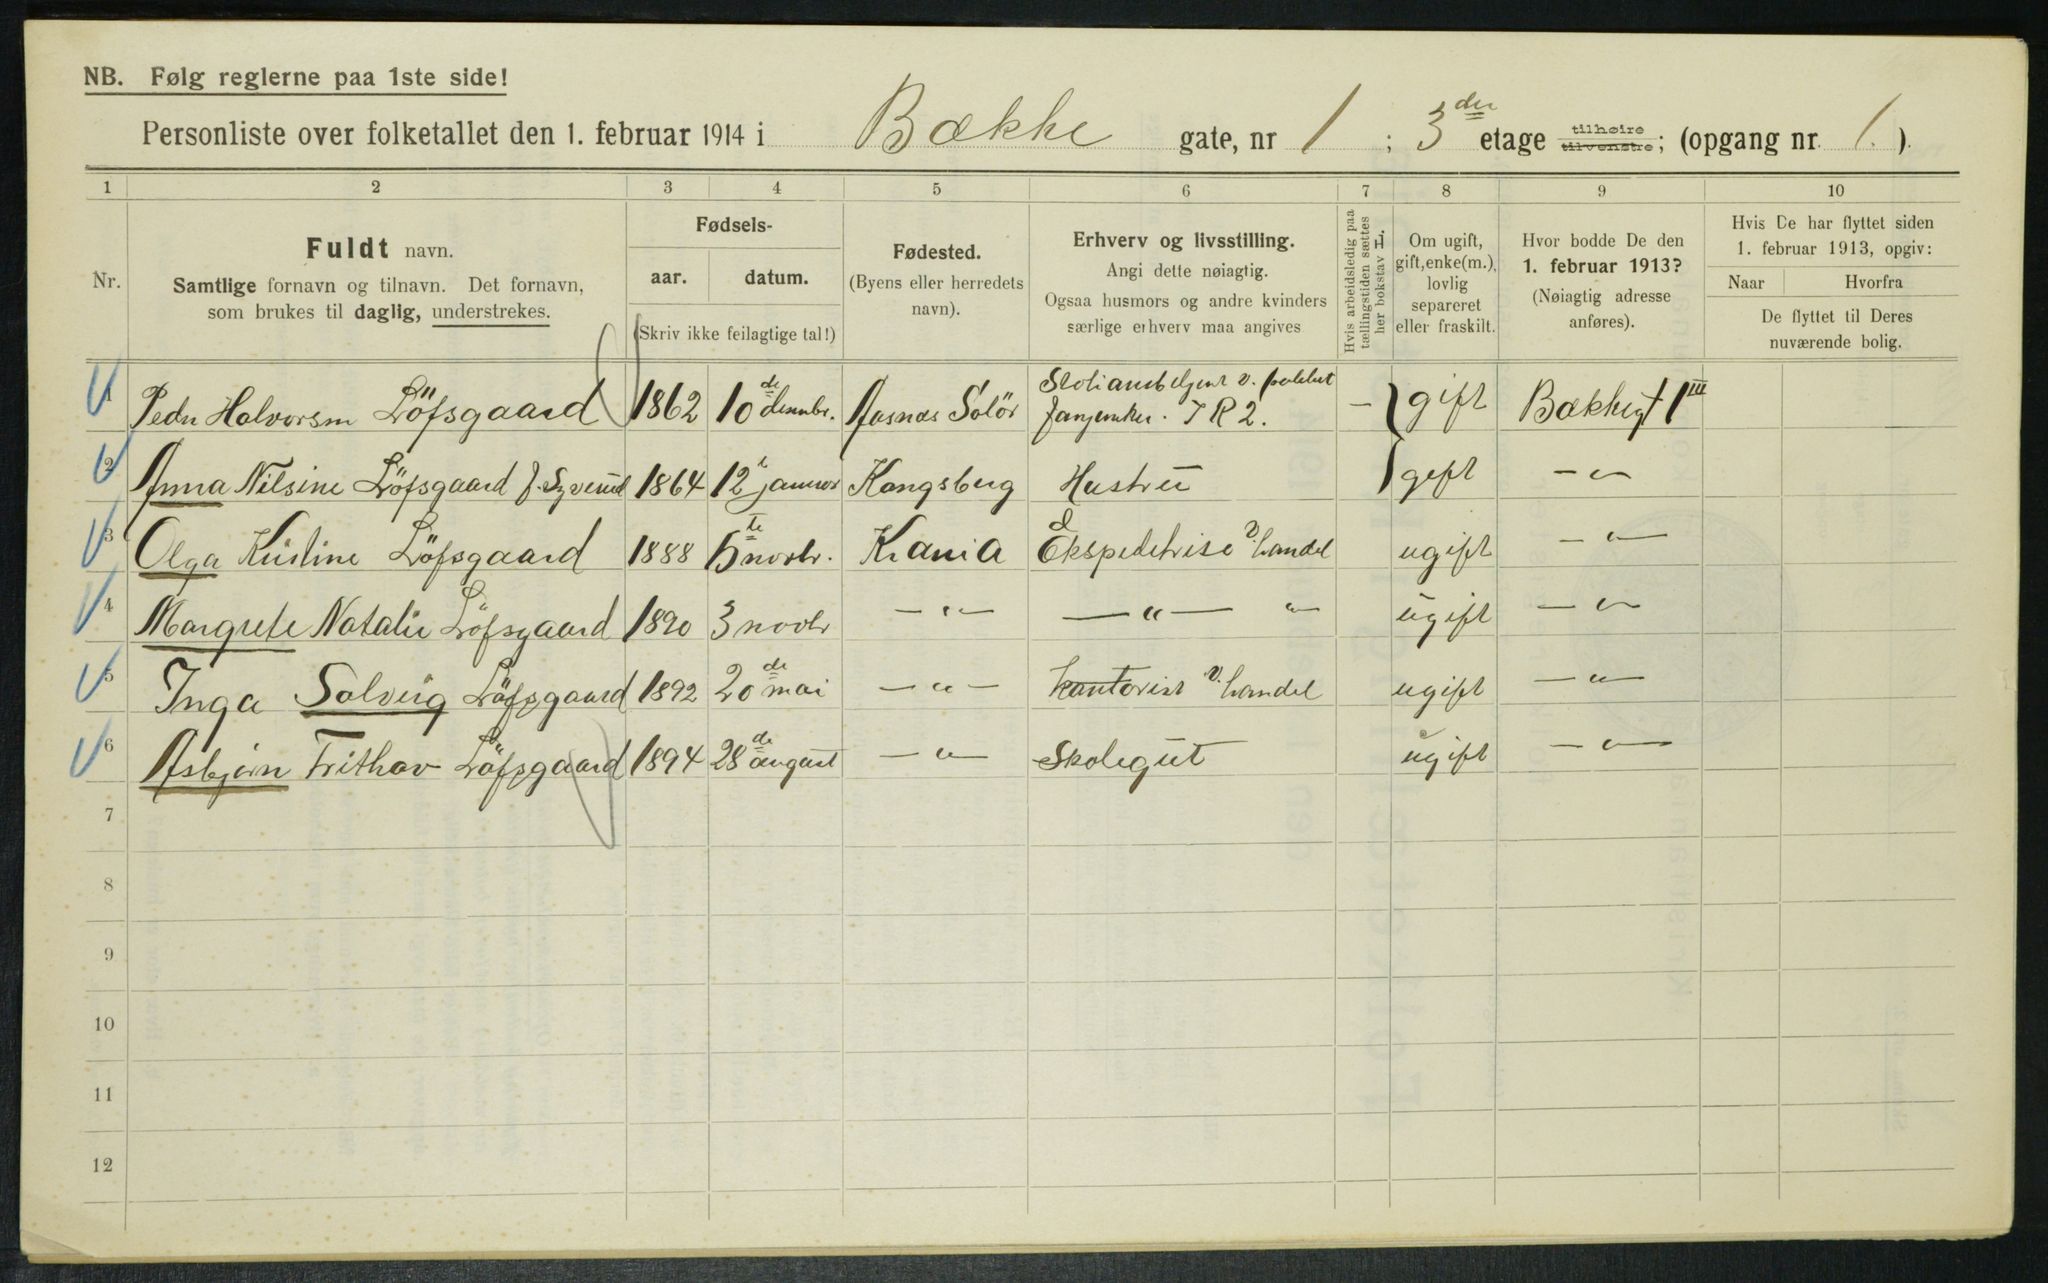 NB. Følg reglerne paa 1ste side!
Personliste over folketallet den 1. februar 1914 i Bække gate, nr 1 ; 3die etage tilhøire tilvenstre; (opgang nr. 1.)
1 2 3 4 5 6 7 8 9 10
Nr.
Fuldt navn.
Samtlige fornavn og tilnavn. Det fornavn,
som brukes til daglig, understrekes.
Fødsels-
aar. datum.
(Skriv ikke feilagtige tal!)
Fødested.
(Byens eller herredets
navn).
Erhverv og livsstilling.
Angi dette nøiagtig.
Ogsaa husmors og andre kvinders
særlige erhverv maa angives
Hvis arbeidsledig paa
tællingstiden sættes
her bokstav L.
Om ugift,
gift, enke(m.),
lovlig
separeret
eller fraskilt.
Hvor bodde De den
1. februar 1913?
(Nøiagtig adresse
anføres).
Hvis De har flyttet siden
1. februar 1913, opgiv:
Naar Hvorfra
De flyttet til Deres
nuværende bolig.
1 Peder Halvorsen Löfsgaard 1862 10de desembr. Aasnas Solör v. gift Bækkegt 1 III
2 Anna Nilsine Löfsgaard f. 1864 12 januar Kongsberg Hustru gift — " —
3 Olga Kristine Löfsgaard 1888 5te novbr. Krania Ekspeditrise v. handel ugift — " —
4 Margrete Natalie Löfsgaard 1890 3 novbr — " — — " — " ugift — " —
5 Inga Solveig Löfsgaard 1892 20de mai — " — kontorist v. handel ugift — " —
6 Asbjørn Frithov Löfsgaard 1894 28de august — " — Skolegut ugift — " —
7
8
9
10
11
12